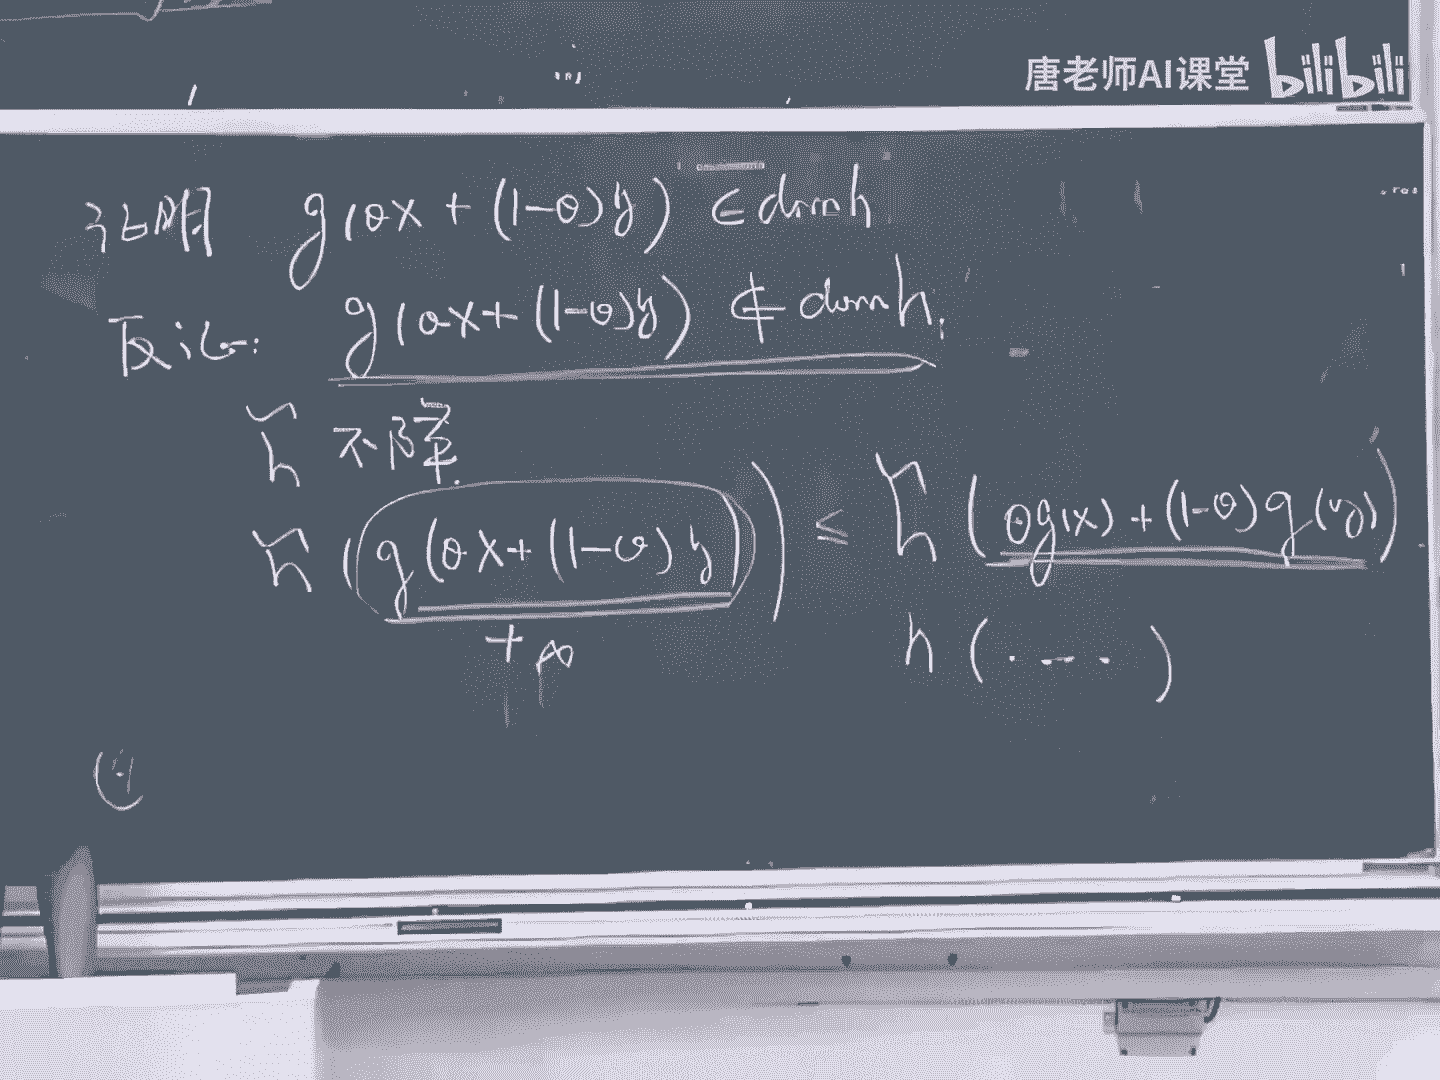 唐老师AI课堂 bilibili
证明 g(θx + (1-θ)y) ∈ dom h
反证: g(θx + (1-θ)y) ∉ dom h.
h̃ 不降.
h̃ (g(θx + (1-θ)y)) ≤ h̃ (θg(x) + (1-θ)g(y))
+∞ h (....)